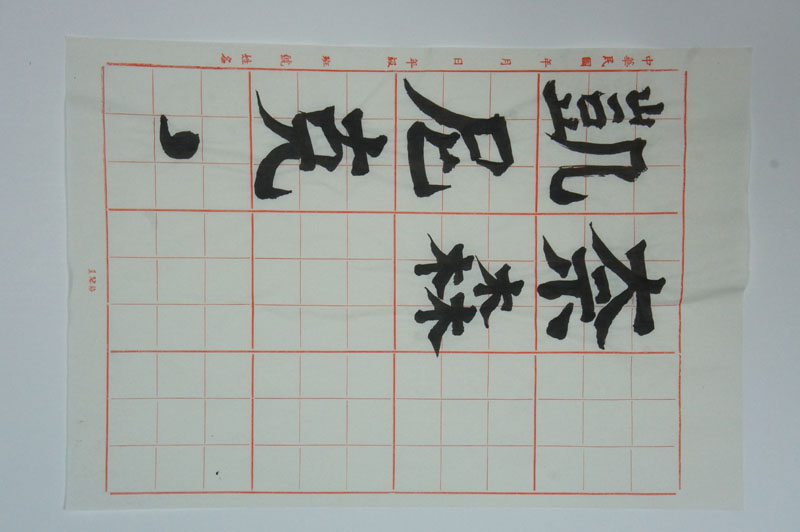 奈森
凱尼克
中華民國 年 月 日 年級 班 號 姓名